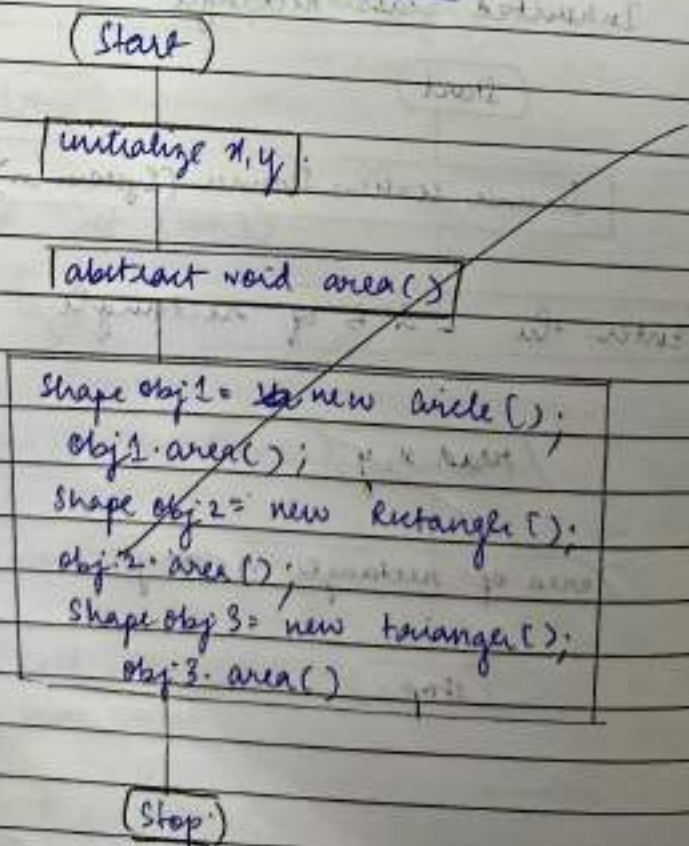 Start
initialize x, y.
abstract void area()
Shape obj1 = new circle();
obj1.area();
Shape obj2 = new Rectangle();
obj.2.area();
Shape obj3 = new triangle();
obj.3.area()
Stop.